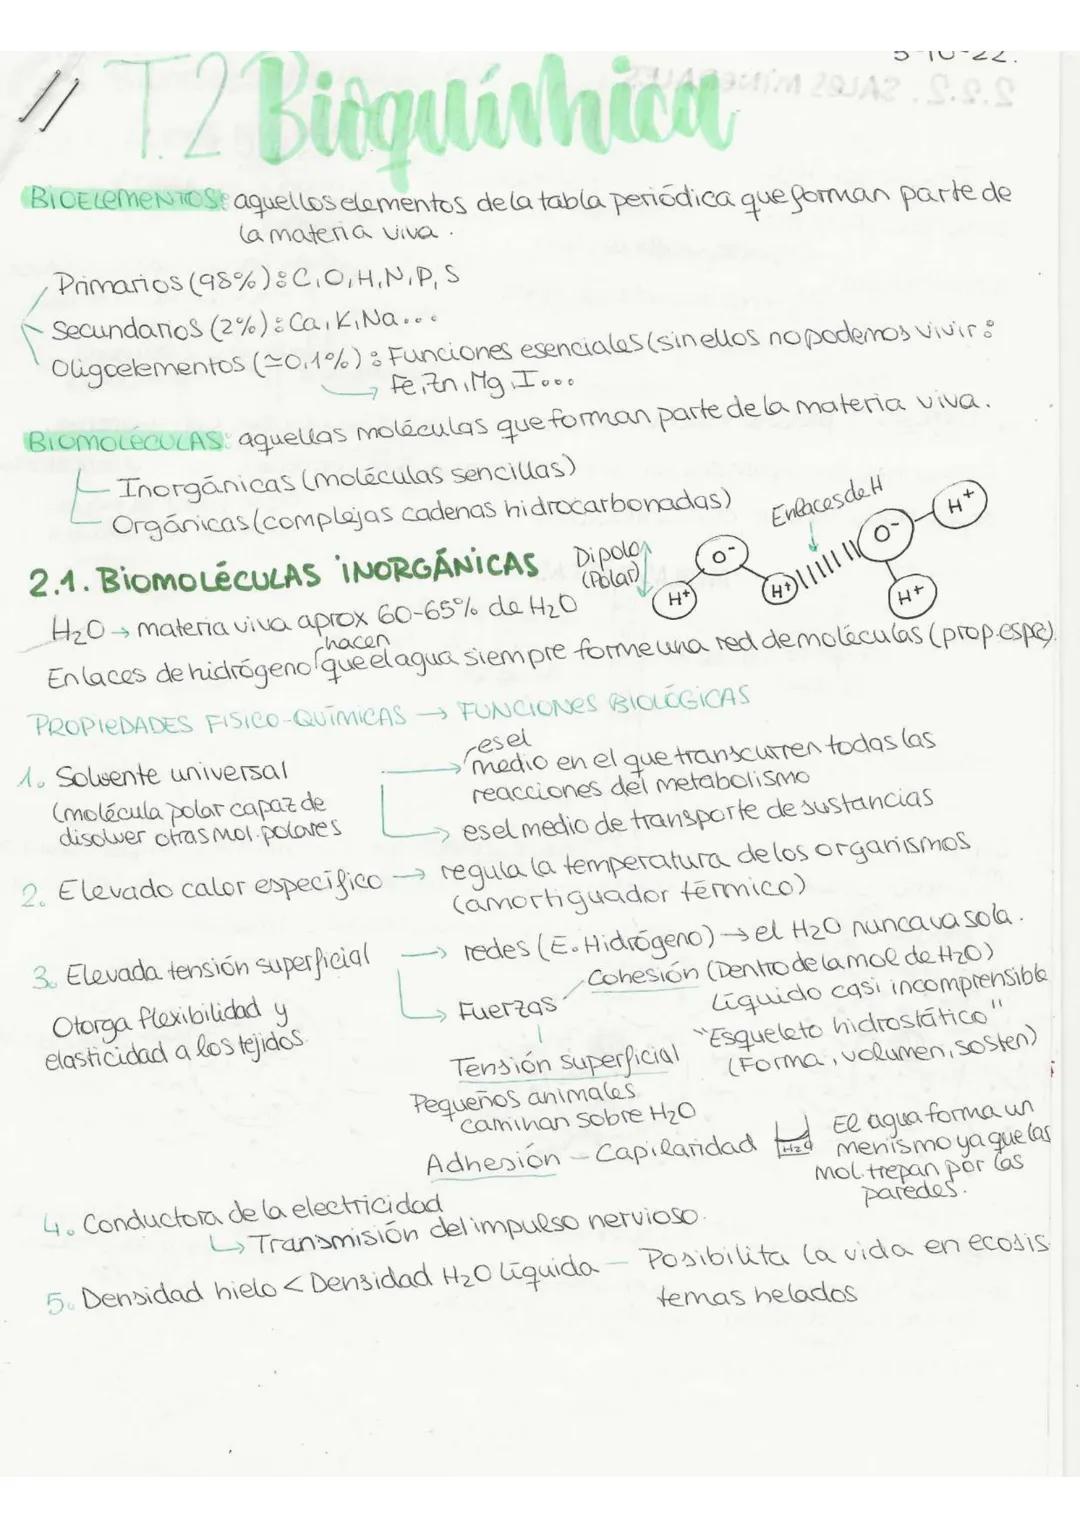 5-10-22.
2.2.2. SALES MINERALES
// T.2 Bioquímica
BIOELEMENTOS: aquellos elementos de la tabla periódica que forman parte de
la materia viva.
Primarios (98%): C, O, H, N, P, S
Secundarios (2%): Ca, K, Na...
Oligoelementos (≃0,1%): Funciones esenciales (sin ellos no podemos vivir:
→ Fe, Zn, Mg, I...
BIOMOLÉCULAS: aquellas moléculas que forman parte de la materia viva.
Inorgánicas (moléculas sencillas)
Orgánicas (complejas cadenas hidrocarbonadas)
Enlaces de H
O- H+
Dipolo
(Polar)
O-
H+ H+ H+
2.1. BIOMOLÉCULAS INORGÁNICAS
H2O → materia viva aprox 60-65% de H2O
hacen
Enlaces de hidrógeno que el agua siempre forme una red de moléculas (prop. espe).
PROPIEDADES FISICO-QUÍMICAS → FUNCIONES BIOLÓGICAS
1. Solvente universal
(molécula polar capaz de
disolver otras mol. polares
es el
→ medio en el que transcurren todas las
reacciones del metabolismo
→ es el medio de transporte de sustancias
2. Elevado calor específico → regula la temperatura de los organismos
(amortiguador térmico)
3. Elevada tensión superficial → redes (E. Hidrógeno) → el H2O nunca va sola.
Otorga flexibilidad y
elasticidad a los tejidos.
→ Fuerzas
Cohesión (Dentro de la mol de H2O)
Líquido casi incomprensible
"Esqueleto hidrostático"
(Forma, volumen, sosten)
Tensión superficial
Pequeños animales
caminan sobre H2O
Adhesión - Capilaridad
H2O
El agua forma un
menismo ya que las
mol. trepan por las
paredes.
4. Conductora de la electricidad
→ Transmisión del impulso nervioso.
5. Densidad hielo < Densidad H2O líquida - Posibilita la vida en ecosis
temas helados